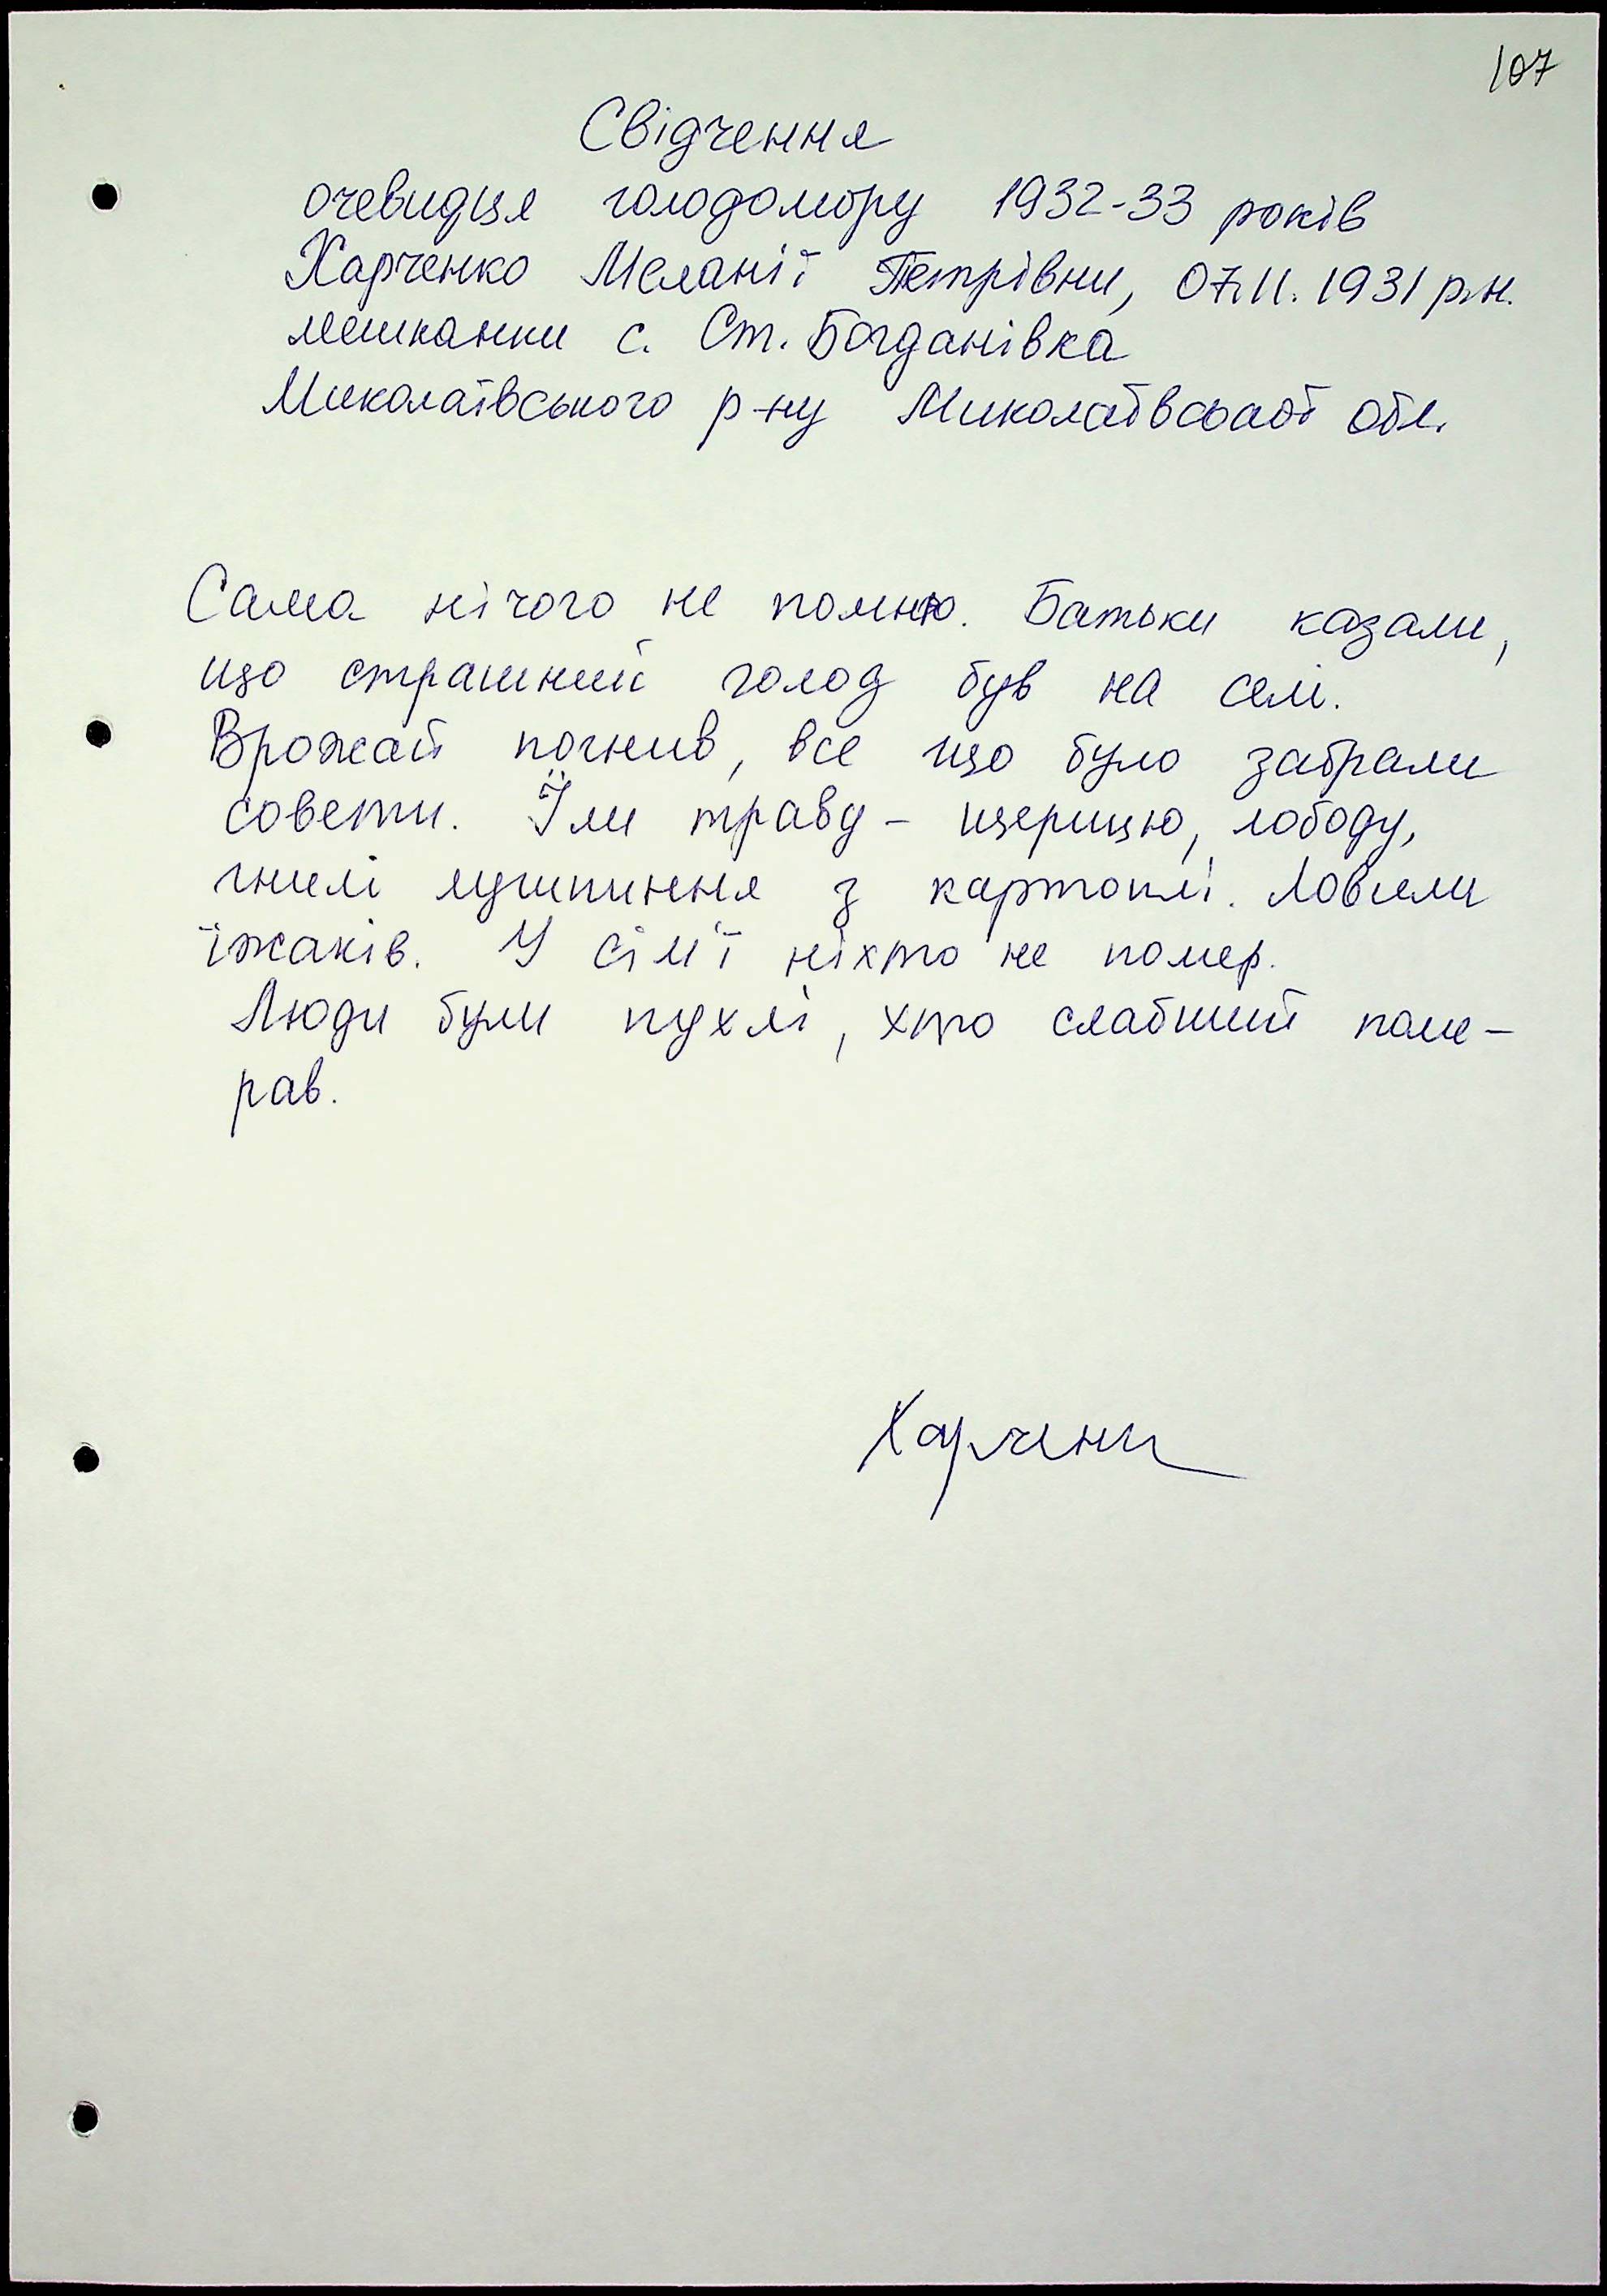 107
Свідчення
очевидця голодомору 1932-33 років
Харченко Меланії Петрівни, 07.11.1931 р.н.
мешканки с. Ст. Богданівка
Миколаївського р-ну Миколаївської обл.
Сама нічого не помню. Батьки казали,
що страшний голод був на селі.
Врожай погнив, все що було забрали
совети. Їли траву - щерицю, лободу,
гнилі лушпиння з картоплі. Ловили
їжаків. У сім'ї ніхто не помер.
Люди були пухлі, хто слабший поме-
рав.
Харченк